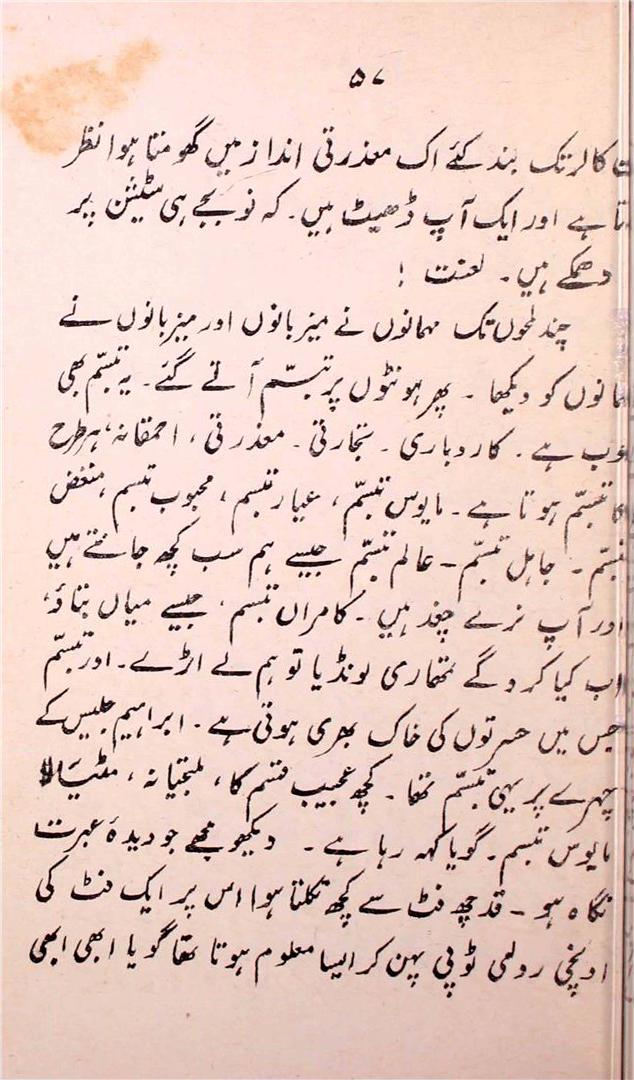 ۵۷
کالر تک بند کئے اک معذرتی انداز میں گھومتا ہوا نظر
ہے اور ایک آپ ڈھیٹ ہیں۔ کہ نو بجے ہی سٹیشن پر
دھمکے ہیں۔ لعنت !
چند لمحوں تک مہمانوں نے میزبانوں اور میزبانوں نے
مہمانوں کو دیکھا ۔ پھر ہونٹوں پر تبسّم آتے گئے۔ یہ تبسّم بھی
خوب ہے۔ کاروباری۔ تجارتی۔ معذرتی، احمقانہ، ہر طرح
کا تبسّم ہوتا ہے۔ مایوس تبسّم، عیار تبسم، محبوب تبسم، منغض
تبسّم۔ جاہل تبسّم۔ عالم تبسّم جیسے ہم سب کچھ جانتے ہیں
اور آپ نرے چغد ہیں۔ کامراں تبسم، جیسے میاں بتاؤ،
اب کیا کرو گے تمھاری لونڈیا تو ہم لے اڑے۔ اور تبسّم
جس میں حسرتوں کی خاک بھری ہوتی ہے۔ ابراہیم جلیس کے
چہرے پر یہی تبسّم تھا۔ کچھ عجیب قسم کا، ملتجیانہ، مٹیالا
مایوس تبسم۔ گویا کہہ رہا ہے۔ دیکھو مجھے جو دیدۂ عبرت
نگاہ ہو۔ قد چھ فٹ سے کچھ نکلتا ہوا اس پر ایک فٹ کی
اونچی رومی ٹوپی پہن کر ایسا معلوم ہوتا تھا گویا ابھی ابھی